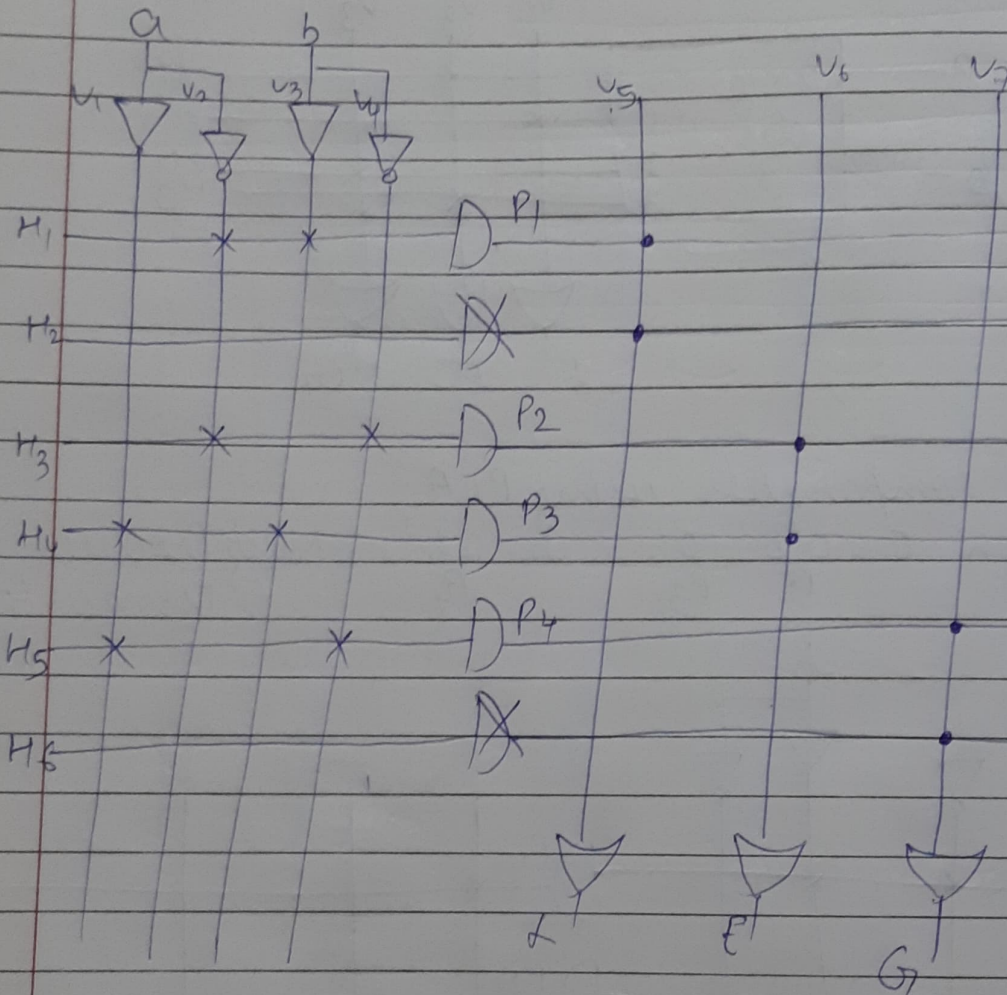 a b
V1 V2 V3 V4 V5 V6 V7
H1 P1
H2
H3 P2
H4 P3
H5 P4
H6
L E G